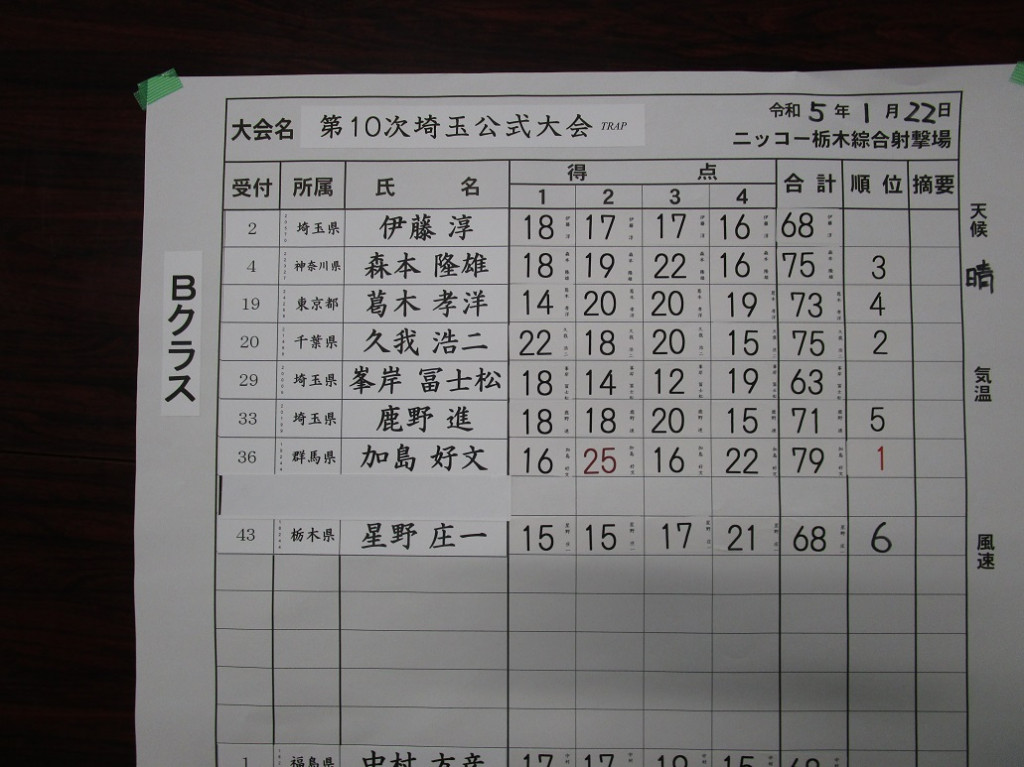 大会名 第10次埼玉公式大会 TRAP 令和5年1月22日
ニッコー栃木綜合射撃場
受付 所属 氏 名 得 点 合計 順位 摘要
1 2 3 4
2 埼玉県 伊藤 淳 18 17 17 16 68
4 神奈川県 森本 隆雄 18 19 22 16 75 3
19 東京都 葛木 孝洋 14 20 20 19 73 4
20 千葉県 久我 浩二 22 18 20 15 75 2
29 埼玉県 峯岸 冨士松 18 14 12 19 63
33 埼玉県 鹿野 進 18 18 20 15 71 5
36 群馬県 加島 好文 16 25 16 22 79 1
43 栃木県 星野 庄一 15 15 17 21 68 6
1 福島県 中村
Bクラス
天候
晴
気温
風速